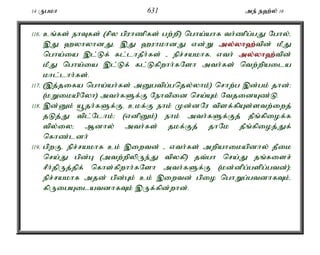 14 ருபமா 631 அந் நஹ்ல் 16
116. உங்கள் நாவுகள் (சில பிராணிகள் பற்றி) பொய்யாக வர்ணிப்பது போல்,
இது ஹலாலானது, இது ஹராமானது என்று அல்லாஹ்வின் மீது
பொய்யை இட்டுக் கட்டாதீர்கள் - நிச்சயமாக, எவர் அல்லாஹ்வின்
மீது பொய்யை இட்டுக் கட்டுகிறார்களோ அவர்கள் வெற்றியடைய
மாட்டார்கள்.
117. (இத்தகைய பொய்யர்கள் அனுபவிப்பதெல்லாம்) சொற்ப இன்பம் தான்;
(மறுமையிலோ) அவர்களுக்கு நோவினை செய்யும் வேதனையுண்டு.
118. இன்னும் யூதர்களுக்கு, உமக்கு நாம் முன்னரே விளக்கியுள்ளவற்றைத்
தடுத்து விட்டோம்; (எனினும்) நாம் அவர்களுக்குத் தீங்கிழைக்க
வில்லை; ஆனால் அவர்கள் தமக்குத் தாமே தீங்கிழைத்துக்
கொண்டனர்
119. பிறகு, நிச்சயமாக உம் இறைவன் - எவர்கள் அறியாமையினால் தீமை
செய்து பின்பு (அவற்றிலிருந்து விலகி) தவ்பா செய்து தங்களைச்
சீர்திருத்திக் கொள்கிறார்களோ அவர்களுக்கு (மன்னிப்பளிப்பவன்);
நிச்சயமாக அதன் பின்பும் உம் இறைவன் பிழை பொறுப்பவனாகவும்,
கிருபையுடையவனாகவும் இருக்கின்றான்.